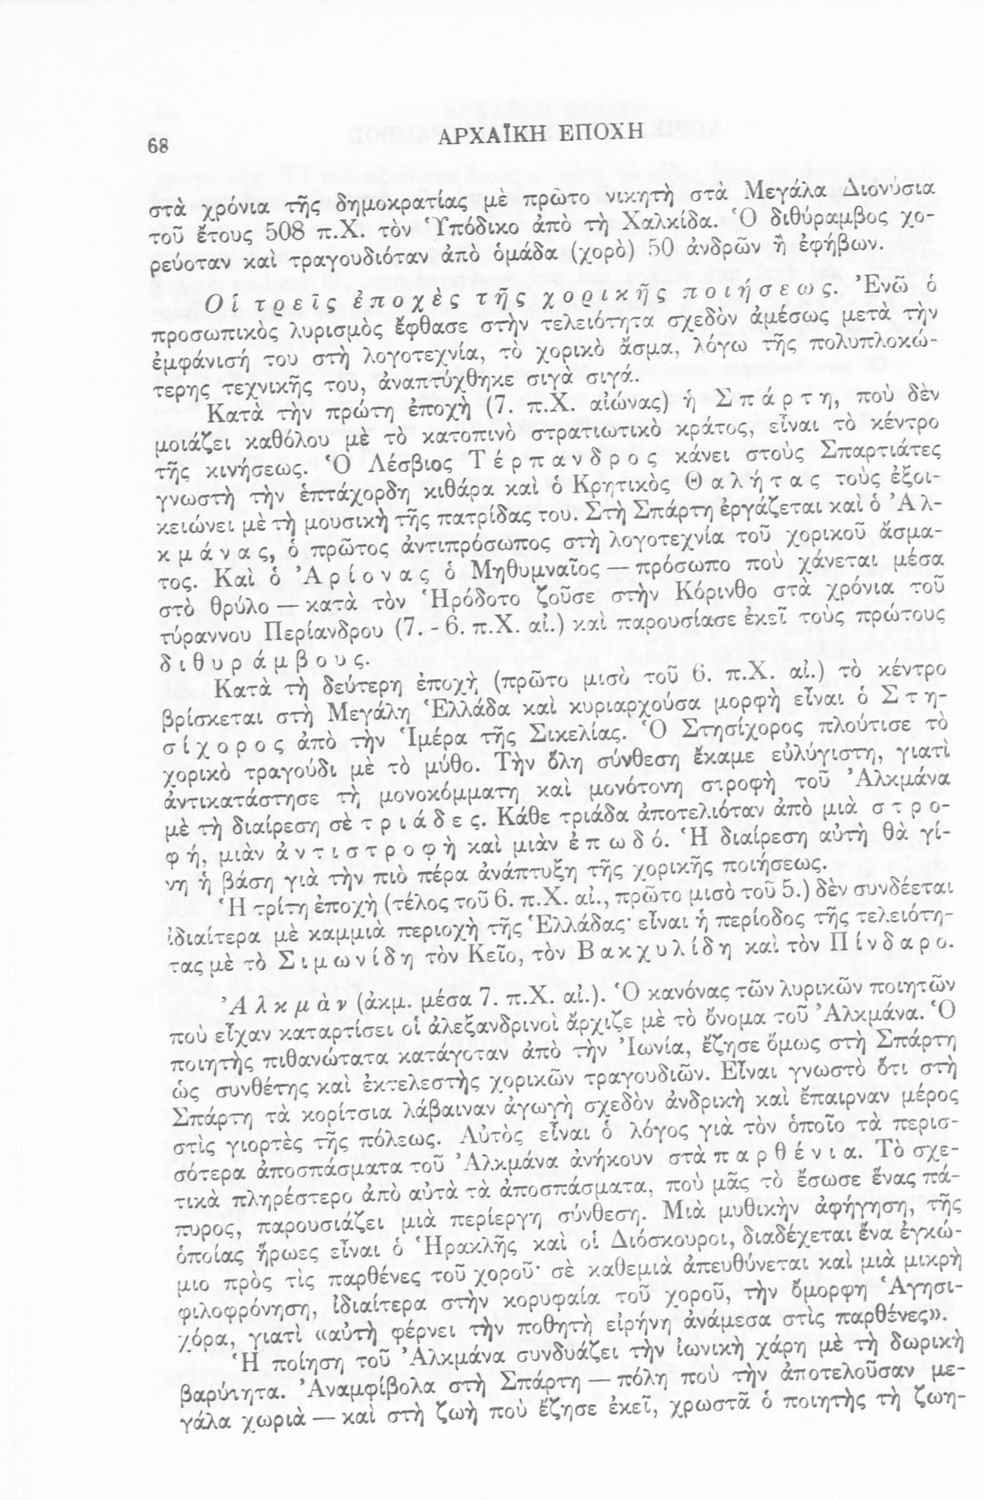 68
ΑΡΧΑΪΚΗ ΕΠΟΧΗ
στὰ χρόνια τῆς δημοκρατίας μὲ πρῶτο νικητὴ στὰ Μεγάλα Διονύσια
τοῦ ἔτους 508 π.Χ. τὸν Ὑπόδικο ἀπὸ τὴ Χαλκίδα. Ὁ διθύραμβος χο-
ρεύοταν καὶ τραγουδιόταν ἀπὸ ὁμάδα (χορὸ) 50 ἀνδρῶν ἢ ἐφήβων.
Οἱ τρεῖς ἐποχὲς τῆς χορικῆς ποιήσεως. Ἐνῶ ὁ
προσωπικὸς λυρισμὸς ἔφθασε στὴν τελειότητα σχεδὸν ἀμέσως μετὰ τὴν
ἐμφάνισή του στὴ λογοτεχνία, τὸ χορικὸ ᾆσμα, λόγω τῆς πολυπλοκώ-
τερης τεχνικῆς του, ἀναπτύχθηκε σιγὰ σιγά.
Κατὰ τὴν πρώτη ἐποχὴ (7. π.Χ. αἰώνας) ἡ Σπάρτη, ποὺ δὲν
μοιάζει καθόλου μὲ τὸ κατοπινὸ στρατιωτικὸ κράτος, εἶναι τὸ κέντρο
τῆς κινήσεως. Ὁ Λέσβιος Τέρπανδρος κάνει στοὺς Σπαρτιάτες
γνωστὴ τὴν ἑπτάχορδη κιθάρα καὶ ὁ Κρητικὸς Θαλήτας τοὺς ἐξοι-
κειώνει μὲ τὴ μουσικὴ τῆς πατρίδας του. Στὴ Σπάρτη ἐργάζεται καὶ ὁ Ἀλ-
κμάνας, ὁ πρῶτος ἀντιπρόσωπος στὴ λογοτεχνία τοῦ χορικοῦ ᾄσμα-
τος. Καὶ ὁ Ἀρίονας ὁ Μηθυμναῖος — πρόσωπο ποὺ χάνεται μέσα
στὸ θρύλο — κατὰ τὸν Ἡρόδοτο ζοῦσε στὴν Κόρινθο στὰ χρόνια τοῦ
τύραννου Περίανδρου (7. - 6. π.Χ. αἰ.) καὶ παρουσίασε ἐκεῖ τοὺς πρώτους
διθυράμβους.
Κατὰ τὴ δεύτερη ἐποχὴ (πρῶτο μισὸ τοῦ 6. π.Χ. αἰ.) τὸ κέντρο
βρίσκεται στὴ Μεγάλη Ἑλλάδα καὶ κυριαρχούσα μορφὴ εἶναι ὁ Στη-
σίχορος ἀπὸ τὴν Ἱμέρα τῆς Σικελίας. Ὁ Στησίχορος πλούτισε τὸ
χορικὸ τραγούδι μὲ τὸ μύθο. Τὴν ὅλη σύνθεση ἔκαμε εὐλύγιστη, γιατὶ
ἀντικατάστησε τὴ μονοκόμματη καὶ μονότονη στροφὴ τοῦ Ἀλκμάνα
μὲ τὴ διαίρεση σὲ τριάδες. Κάθε τριάδα ἀποτελιόταν ἀπὸ μιὰ στρο-
φή, μιὰν ἀντιστροφὴ καὶ μιὰν ἐπωδό. Ἡ διαίρεση αὐτὴ θὰ γί-
νη ἡ βάση γιὰ τὴν πιὸ πέρα ἀνάπτυξη τῆς χορικῆς ποιήσεως.
Ἡ τρίτη ἐποχὴ (τέλος τοῦ 6. π.Χ. αἰ., πρῶτο μισὸ τοῦ 5.) δὲν συνδέεται
ἰδιαίτερα μὲ καμμιὰ περιοχὴ τῆς Ἑλλάδας· εἶναι ἡ περίοδος τῆς τελειότη-
τας μὲ τὸ Σιμωνίδη τὸν Κεῖο, τὸν Βακχυλίδη καὶ τὸν Πίνδαρο.
Ἀλκμὰν (ἀκμ. μέσα 7. π.Χ. αἰ.). Ὁ κανόνας τῶν λυρικῶν ποιητῶν
ποὺ εἶχαν καταρτίσει οἱ ἀλεξανδρινοὶ ἄρχιζε μὲ τὸ ὄνομα τοῦ Ἀλκμάνα. Ὁ
ποιητὴς πιθανώτατα κατάγοταν ἀπὸ τὴν Ἰωνία, ἔζησε ὅμως στὴ Σπάρτη
ὡς συνθέτης καὶ ἐκτελεστὴς χορικῶν τραγουδιῶν. Εἶναι γνωστὸ ὅτι στὴ
Σπάρτη τὰ κορίτσια λάβαιναν ἀγωγὴ σχεδὸν ἀνδρικὴ καὶ ἔπαιρναν μέρος
στὶς γιορτὲς τῆς πόλεως. Αὐτὸς εἶναι ὁ λόγος γιὰ τὸν ὁποῖο τὰ περισ-
σότερα ἀποσπάσματα τοῦ Ἀλκμάνα ἀνήκουν στὰ παρθένια. Τὸ σχε-
τικὰ πληρέστερο ἀπὸ αὐτὰ τὰ ἀποσπάσματα, ποὺ μᾶς τὸ ἔσωσε ἕνας πά-
πυρος, παρουσιάζει μιὰ περίεργη σύνθεση. Μιὰ μυθικὴν ἀφήγηση, τῆς
ὁποίας ἥρωες εἶναι ὁ Ἡρακλῆς καὶ οἱ Διόσκουροι, διαδέχεται ἕνα ἐγκώ-
μιο πρὸς τὶς παρθένες τοῦ χοροῦ· σὲ καθεμιὰ ἀπευθύνεται καὶ μιὰ μικρὴ
φιλοφρόνηση, ἰδιαίτερα στὴν κορυφαία τοῦ χοροῦ, τὴν ὄμορφη Ἁγησι-
χόρα, γιατὶ «αὐτὴ φέρνει τὴν ποθητὴ εἰρήνη ἀνάμεσα στὶς παρθένες».
Ἡ ποίηση τοῦ Ἀλκμάνα συνδυάζει τὴν ἰωνικὴ χάρη μὲ τὴ δωρικὴ
βαρύτητα. Ἀναμφίβολα στὴ Σπάρτη — πόλη ποὺ τὴν ἀποτελοῦσαν με-
γάλα χωριὰ — καὶ στὴ ζωὴ ποὺ ἔζησε ἐκεῖ, χρωστᾶ ὁ ποιητὴς τὴ ζωη-